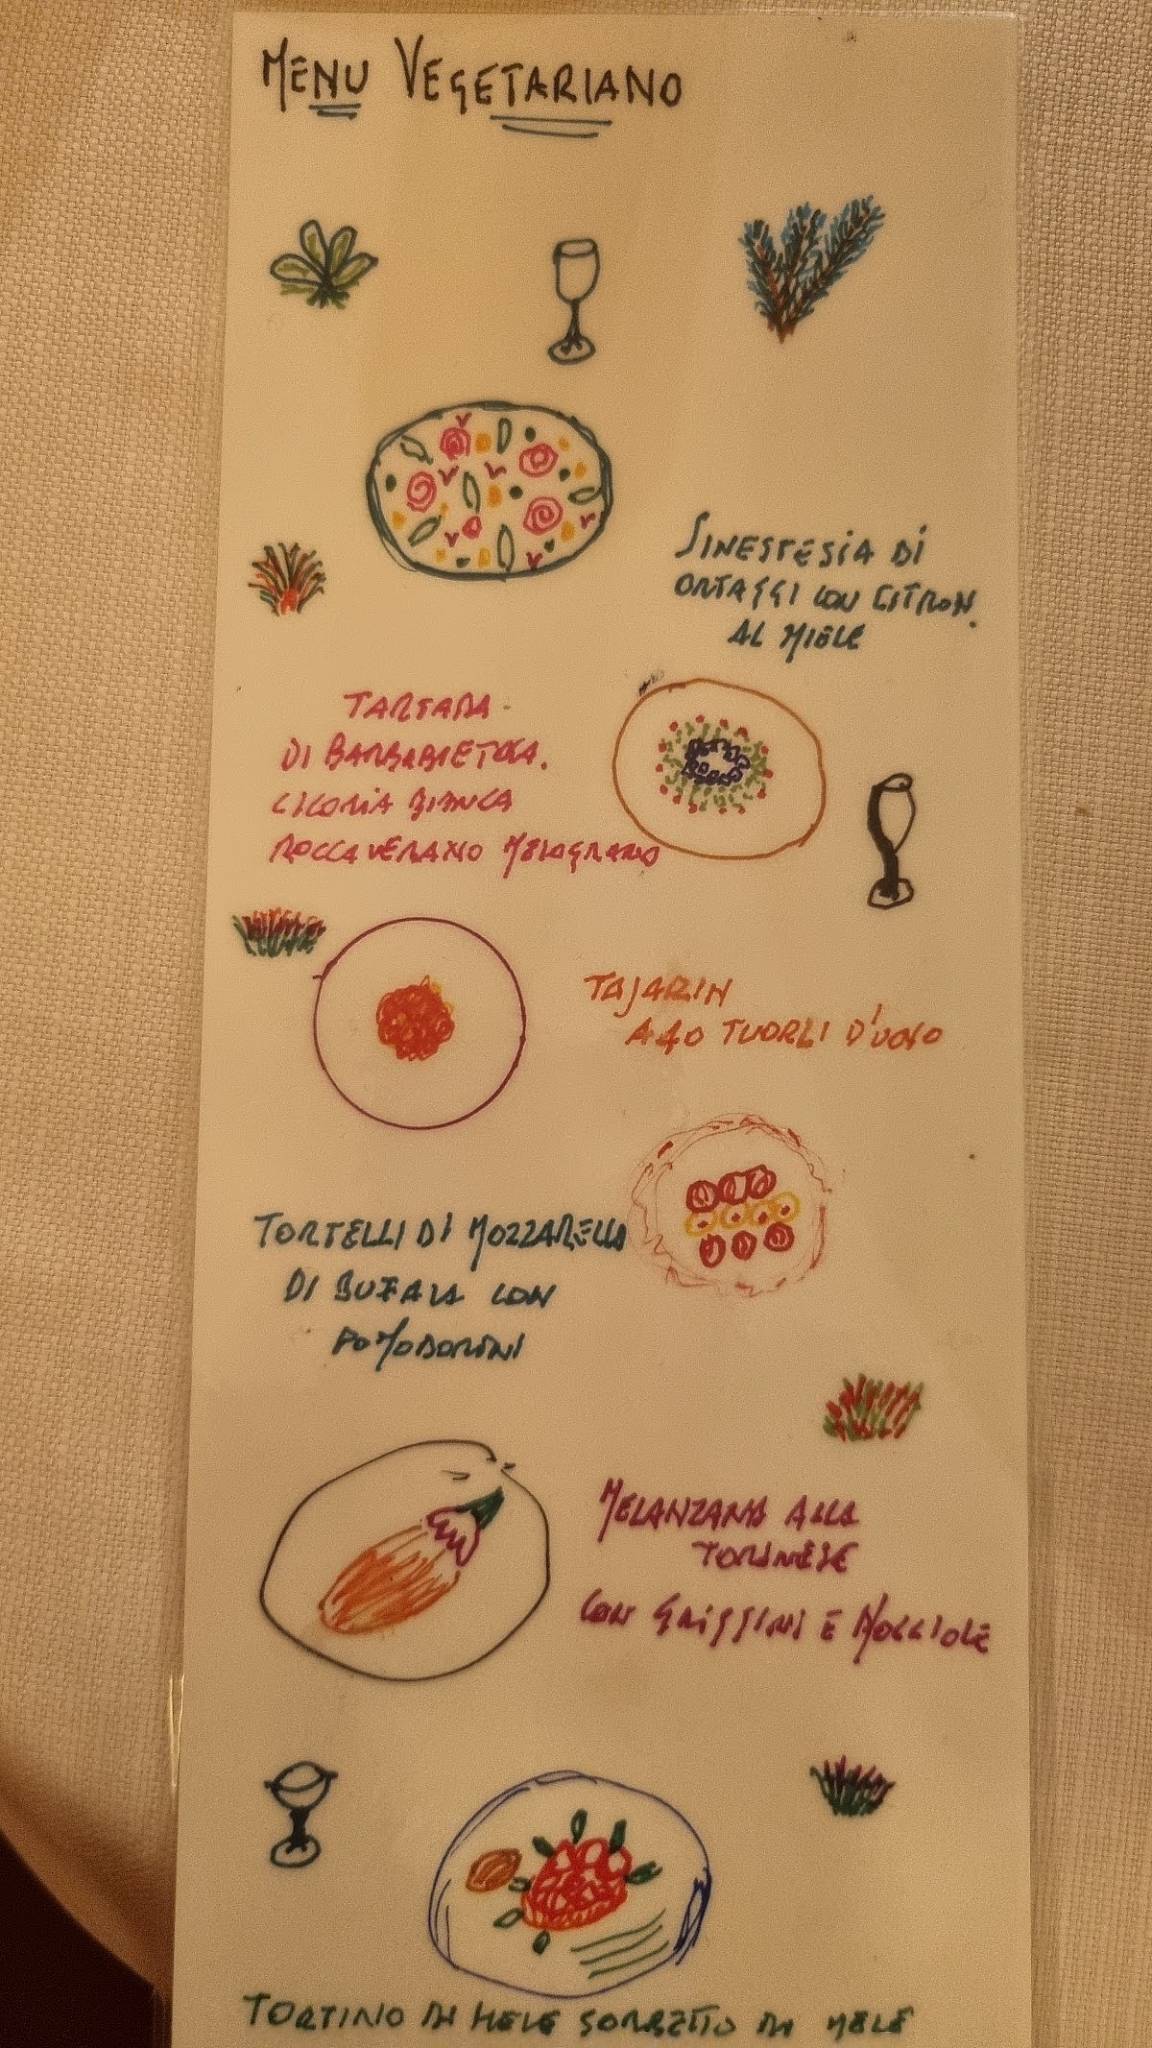 MENU VEGETARIANO
SINESTESIA DI
ORTAGGI CON CITRON.
AL MIELE
TARTARA
DI BARBABIETOLA.
CICORIA BIANCA
ROCCAVERANO MELOGRANO
TAJARIN
A 40 TUORLI D'UOVO
TORTELLI DI MOZZARELLA
DI BUFALA CON
POMODORINI
MELANZANA ALLA
TORINESE
CON GRISSINI E NOCCIOLE
TORTINO DI MELE SORBETTO DI MELE